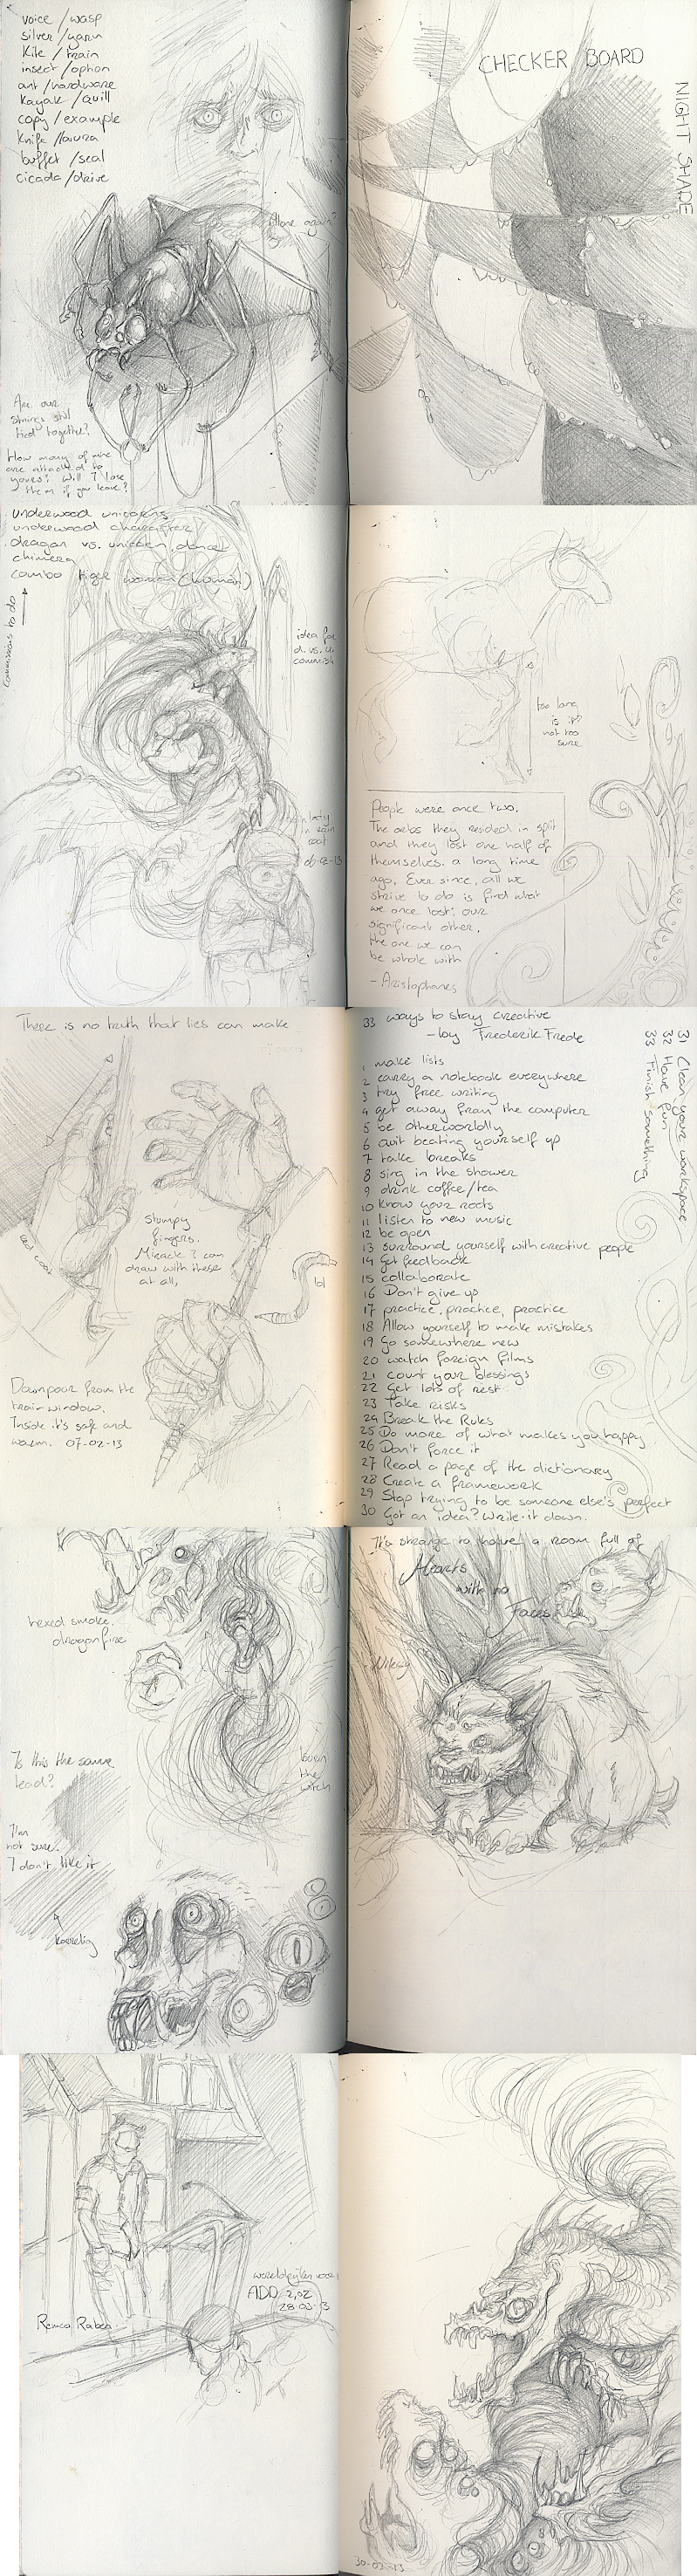 voice / wasp
silver / yarn
kite / train
insect / option
ant / hardware
kayak / quill
copy / example
knife / aura
buffet / seal
cicada / drive
Alone again?
Are our
strings still
tied together?
How many of mine
are attached to
yours? Will I lose
them if you leave?
CHECKER BOARD
NIGHT SHADE
underwood unicorns
underwood character
dragon vs. unicorn dance
chimera
combo tiger woman (human)
commissions to do
idea for
d. vs. u.
commish
lady
in rain
coat
06-02-13
too long
is it?
not too
sure
People were once two.
The orbs they resided in split
and they lost one half of
themselves. a long time
ago. Ever since, all we
strive to do is find what
we once lost: our
significant other,
the one we can
be whole with
- Aristophanes
There is no truth that lies can make
stumpy
fingers.
Miracle I can
draw with these
at all,
red coat
lol
Downpour from the
train window.
Inside it's safe and
warm. 07-02-13
33 ways to stay creative
- by Frederik Frede
1 make lists
2 carry a notebook everywhere
3 try free writing
4 get away from the computer
5 be otherworldly
6 quit beating yourself up
7 take breaks
8 sing in the shower
9 drink coffee/tea
10 know your roots
11 listen to new music
12 be open
13 surround yourself with creative people
14 Get feedback
15 collaborate
16 Don't give up
17 practice, practice, practice
18 Allow yourself to make mistakes
19 Go somewhere new
20 watch foreign films
21 count your blessings
22 Get lots of rest
23 Take risks
24 Break the Rules
25 Do more of what makes you happy
26 Don't force it
27 Read a page of the dictionary
28 Create a framework
29 Stop trying to be someone else's perfect
30 Got an idea? Write it down.
31 Clean your workspace
32 Have fun
33 Finish something
hexed smoke.
dragonfire
Is this the same
lead?
I'm
not sure.
I don't like it
korrelig
burn
the
witch
It's strange to have a room full of
Hearts
with no
Faces
Remco Rabca
ADD 2,02
28-03-13
30-03-13